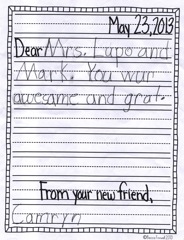 May 23, 2013
Dear Mrs. Lupo and
Mark. You wur
awesome and grat.
From your new friend,
Camryn